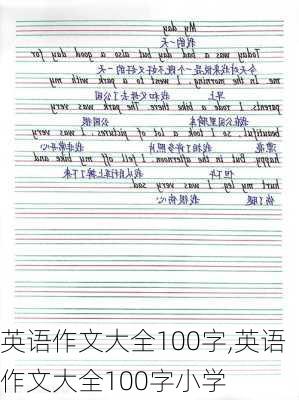 My day
我的一天
Today was a bad day but also a good day for
今天对我来说是一个既不好又好的一天
me In the morning, I went to a park with my
早上 我和父母去了公园
parents. I rode a bike there The park was very
我在公园里骑车 公园很
beautiful, so I took a lot of pictures. I was very
漂亮 我拍了许多照片 我非常开心
happy But in the afternoon I fell off my bike and
但下午 我从自行车上摔了下来
hurt my leg I was very sad
伤了腿 我很伤心
英语作文大全100字,英语
作文大全100字小学